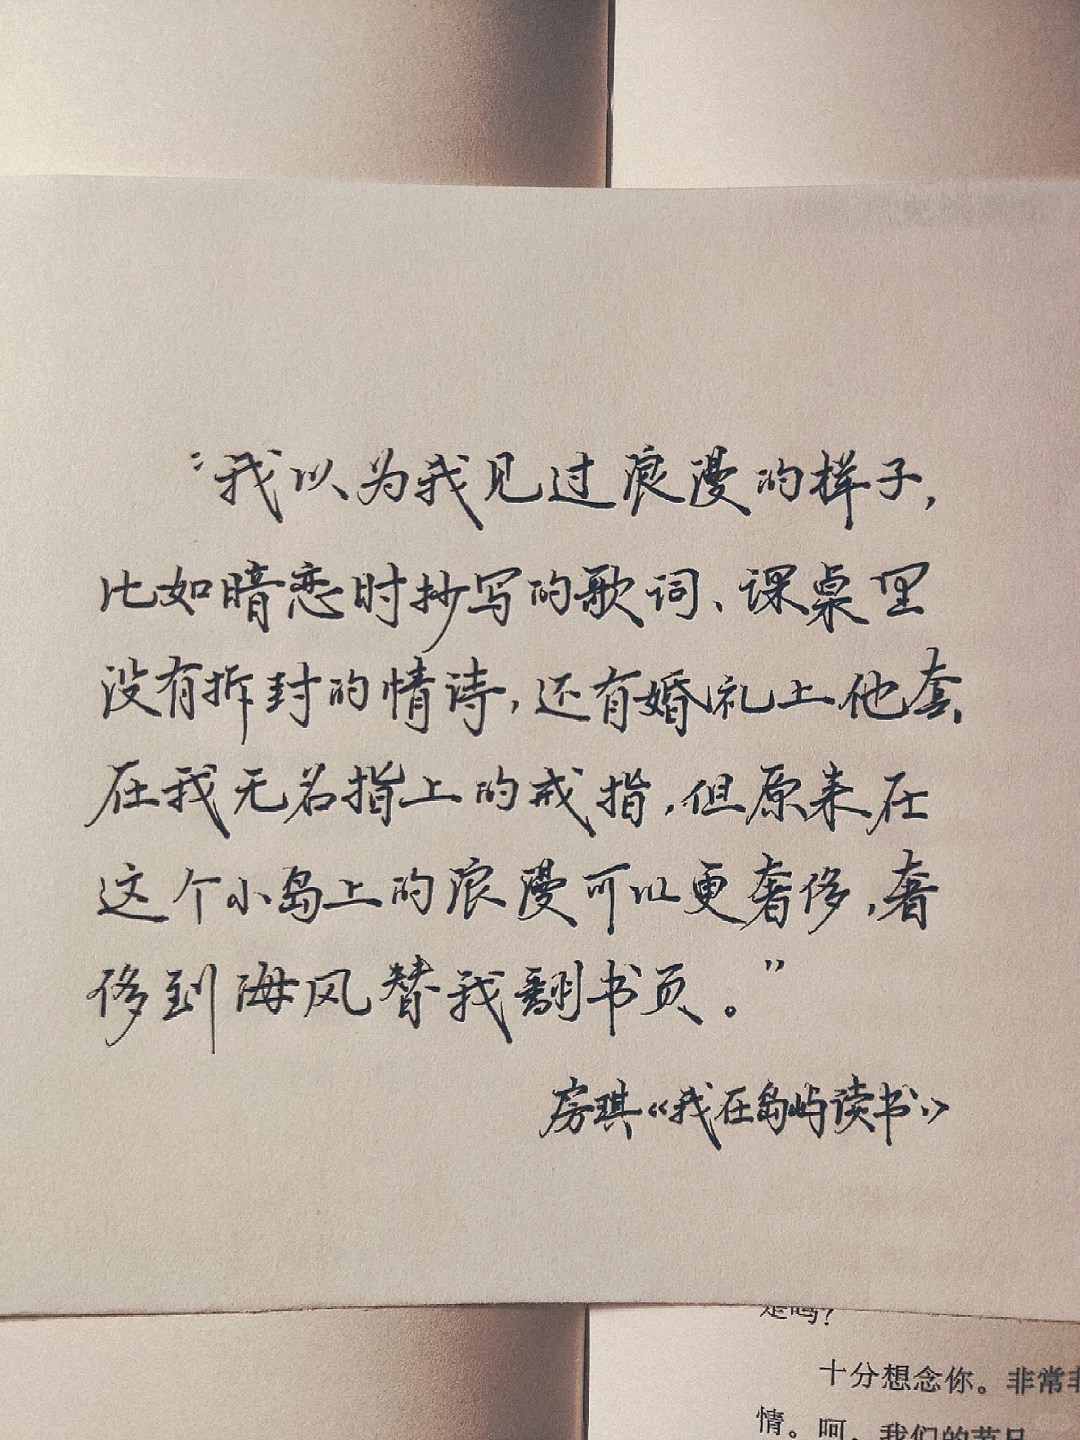 “我以为我见过浪漫的样子，
比如暗恋时抄写的歌词、课桌里
没有拆封的情诗，还有婚礼上他套
在我无名指上的戒指，但原来在
这个小岛上的浪漫可以更奢侈，奢
侈到海风替我翻书页。”
房琪《我在岛屿读书》
是吗？
十分想念你。非常非
情。呵，我们的节日